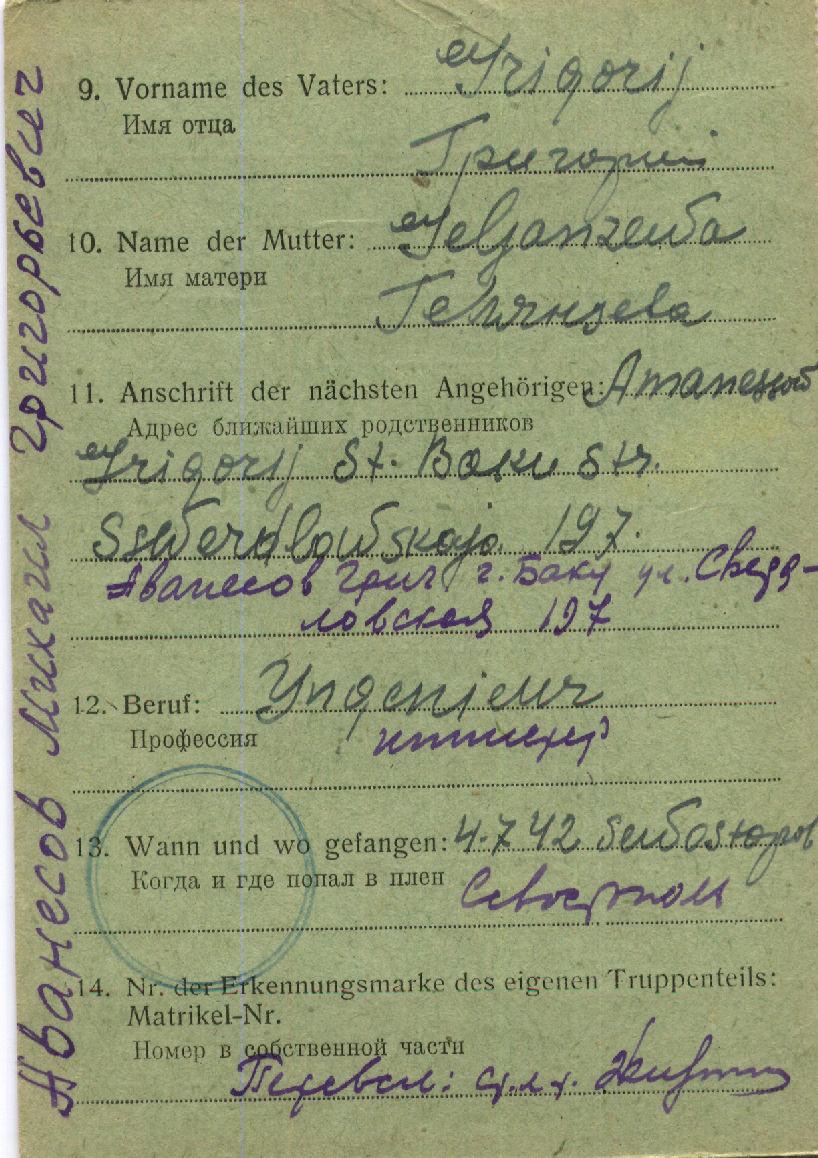 Аванесов Михаил Григорьевич
9. Vorname des Vaters: Grigorij
Имя отца
Григорий
10. Name der Mutter: Geljanzewa
Имя матери
Гелянцева
11. Anschrift der nächsten Angehörigen:
Адрес ближайших родственников
Grigorij St. Baku Str.
Sswerdlowskaja 197.
Аванесов Григ г. Баку ул. Сверд-
ловская 197
12. Beruf: Yngenjeur
Профессия
инженер
13. Wann und wo gefangen: 4.7 42 Sewastopol
Когда и где попал в плен
Севастополь
14. Nr. der Erkennungsmarke des eigenen Truppenteils:
Matrikel-Nr.
Номер в собственной части
Перевел: